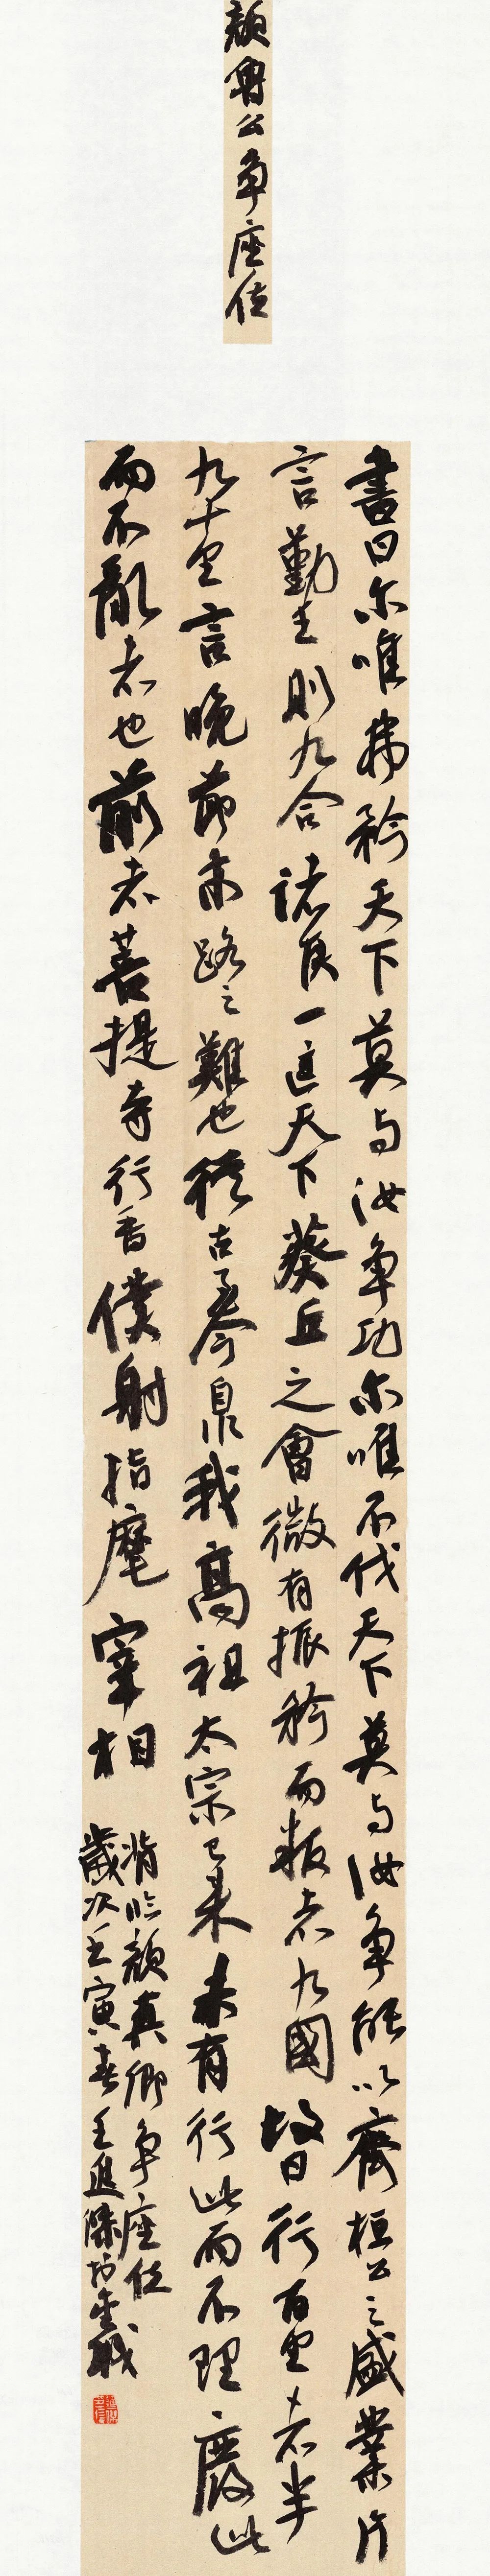 顏魯公争座位
書曰尔唯弗矜天下莫与汝争功尔唯不伐天下莫与汝争能以齊桓公之盛業片
言勤王則九合諸侯一匡天下葵丘之會微有振矜而叛者九國故曰行百里者半
九十里言晚節末路之難也從古至今泉我高祖太宗已来未有行此而不理廢此
而不亂者也前者菩提寺行香僕射指麾宰相
背臨顏真卿争座位
歲次壬寅春王進